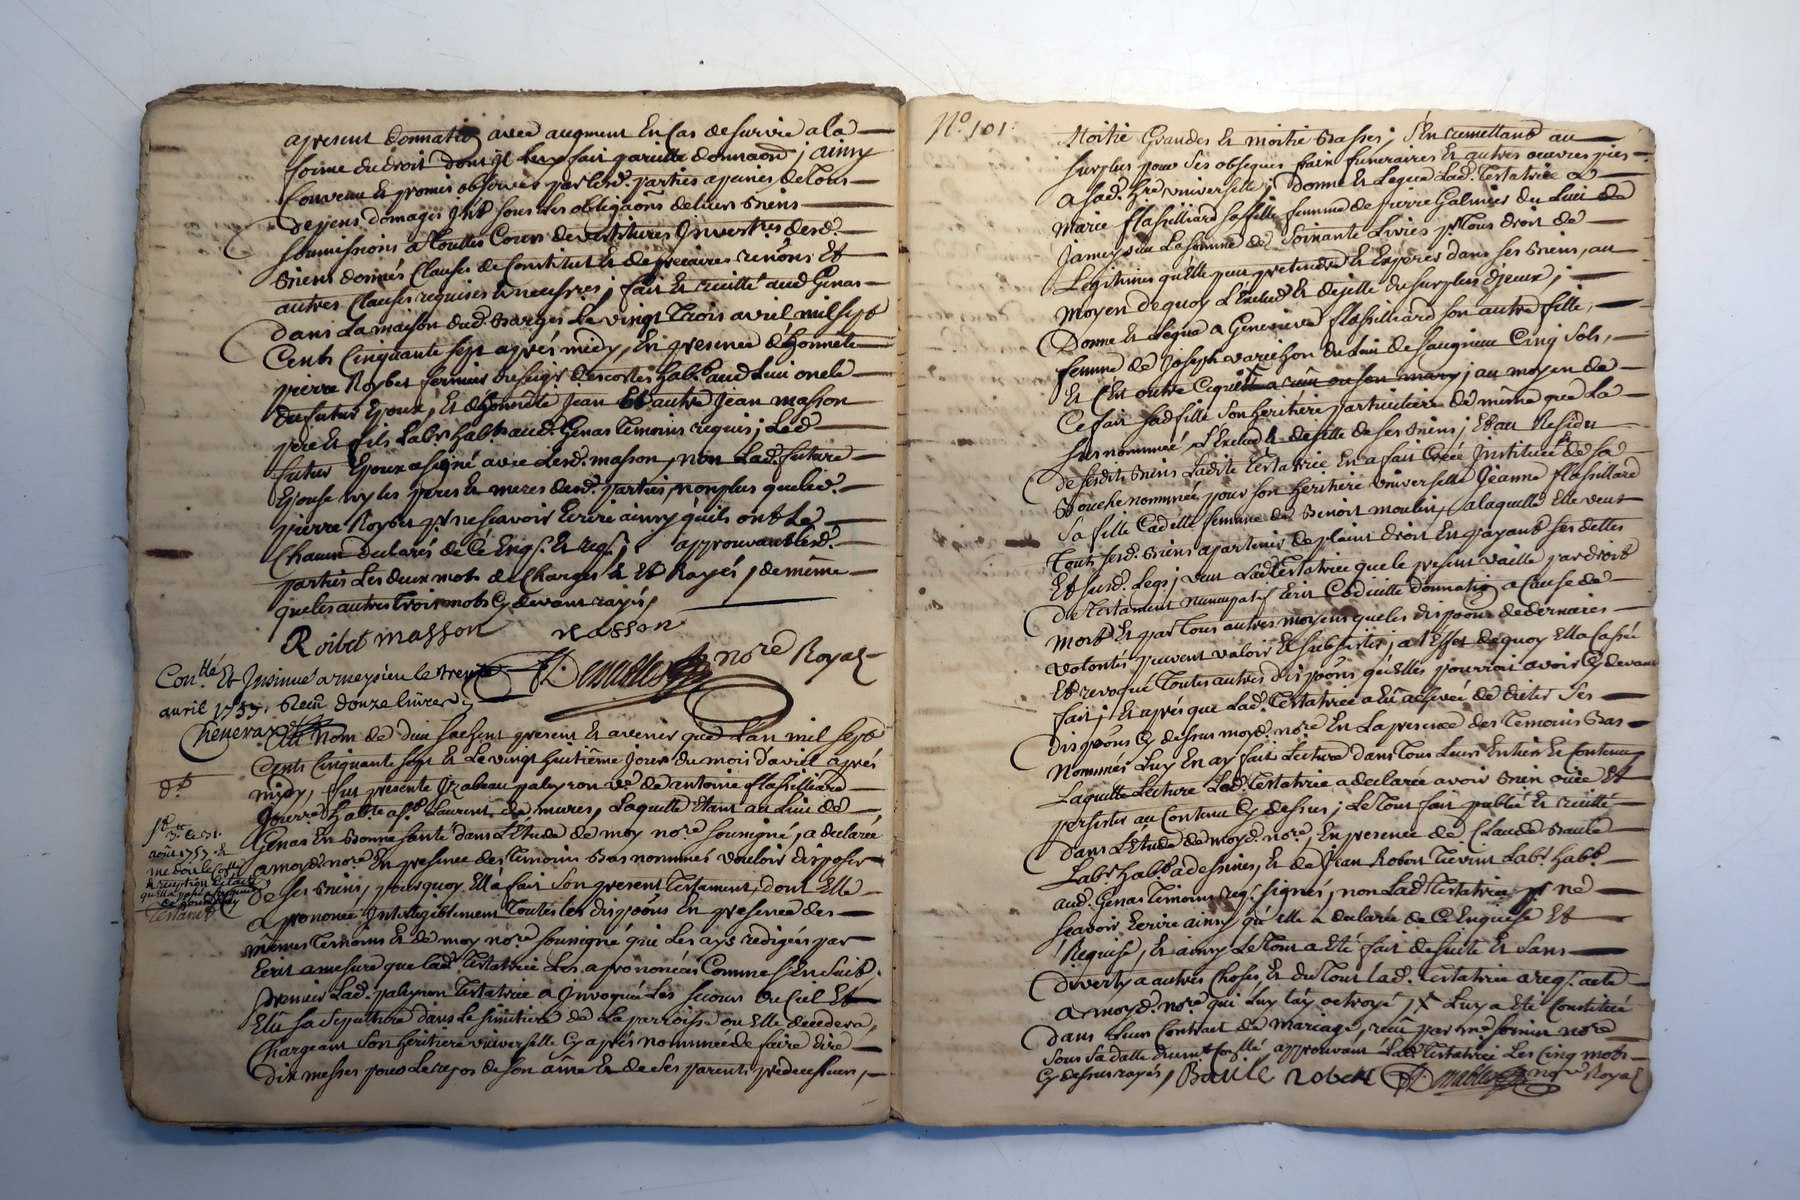 apresent donnatif avec augment En Cas de survie a la
forme du droit dont jl leur fait pareille donnaõn; ainsy
Convenu Et promis observer par lesd. parties apeines de Tous
depens domages jnts sous les obligaõns de leurs Biens
soumissions a Touttes Cours de vestitures Jnvertres desd.
Biens donnés Clauses de Constitut Et de precaires renõns Et
autres Clauses requises Et necessres; fait Et recitté aud Genas
dans La maison dud. Barges Le vingt Trois avril mil sept
Cents Cinquante sept aprés midy, En presence d'honnete
pierre Roybet fermier du seigr d'escortes habt aud Lieu oncle
du futur Epoux, Et d'honnête Jean Et autre Jean masson
pere Et fils Labrs habts aud. Genas Temoins requis; Led.
futur Epoux a signé avec Lesd. masson, non Lad. future
Epouse ny les peres Et meres desd. parties, non plus que led.
pierre Roybet pr ne scavoir Ecrire ainsy qu'ils ont de
Chacun declarés de Ce Enqs. Et reqs; approuvant lesd.
parties Les deux mots de Charges Et Et Rayés, de même
que les autres Trois mots Cy devant rayés,
Roibet masson masson
nore Royal
Conllé Et Jnsinué a meysieu le trente
avril 1757. Reçu douze livres
Au Nom de dieu sachent presents Et avenir que L'an mil sept
Cents Cinquante sept Et Le vingt huitiême Jour du mois d'avril aprés
midy, fut presente Jzabeau paleyron ve. de antoine flassilliard
Jourer habte a st Laurent de mures, Laquelle Etant au Lieu de
Genas En Bonne santé dans L'Etude de moy nore soussigné, a declaré
a moyd. nore En presence des Temoins Bas nommés vouloir disposer
de ses Biens, pourquoy Ell'a fait son present Testament, dont Elle
a prononcé Jntelligiblement Toutes les dispoõns En presence des
mêmes Temoins Et de moy nore soussigné qui Les ays redigées par
Ecrit a mesure que lad. Testatrice Les a prononcées Comme s'En suit.
Premier Lad. paleyron Testatrice a Jnvoquée Les secours du Ciel Et
Elû sa sepulture dans Le simitiere de La parroisse ou Elle decedera,
Chargeant son heritiere universelle Cy aprés nommée de faire dire
dix messes pour Le repos de son âme Et de ses parents predecesseurs,
août 1757. Et
Testamt
No. 101.
Moitié Grandes Et moitié Basses; s'En remettant au
surplus pour ses obseques frain funeraires Et autres oeuvres pies
a sad. hre universelle; Donne Et Legue Lad. Testatrice a
Marie flassilliard sa fille femme de pierre Galmier du Lieu de
Janneyria La somme de Soixante Livres pr Tous droit de
Legitime qu'Elle peut pretendre Et Esperer dans ses Biens, au
moyen de quoy L'Exclud Et dejette du surplus d'Iceux;
Donne Et Legue a Genevieve flassilliard son autre fille,
femme de Joseph varichon du Lieu de saugnieu Cinq Sols,
Et C'Est outre Ce qui; au moyen de
Ce fait sad fille son heritiere particuliere de même que La
sus nommée, L'Exclud Et dejette de ses Biens; Et au Residu
de sesdits Biens Ladite Testatrice En a fait Créé Jnstituée de sa
Bouche nommée pour son heritiere universelle Jeanne flassilliard
sa fille Cadette femme de Benoit moulin, a laquelle Elle veut
Tous sesd. Biens apartenir de plaint droit En payant ses dettes
Et susd. Legs; veut Lad Testatrice que le present vaille par droit
de Testament nuncupatif Ecrit Codicille donnatif a Cause de
mort Et par Tous autres moyens que les dispoõns de dernaires
volontés peuvent valoir Et subsister; a L'Effet de quoy Ell'a Cassé
Et revoqué Toutes autres dispoõns qu'Elles pourroit avoir Cy devant
fait; Et aprés que Lad. Testatrice a Eû achevée de dicter Ses
dispoõns Cy dessus moyd. nore En La presence des Temoins Bas
Nommés Luy En ay fait Lecture dans Tous Leurs Entier Et Contenu
Laquelle Lecture Lad. Testatrice a declarée avoir Bien ouïe Et
persister au Contenu Cy dessus; Le Tout fait publié Et recitté
dans L'Etude de moyd. nore, En presence de Claude Baule
Labr habt a dessines, Et de Jean Robert Tievent Labr habt
aud. Genas Temoins reqs. signés, non Lad. Testatrice pr ne
scavoir Ecrire ainsy qu'elle a declarée de Ce Enquise Et
Requise, Et ainsy Le Tout a Eté fait de suite Et sans
diverty a autres Choses, Et du Tout lad. Testatrice a reqs. acte
a moyd. nore qui Luy l'ay octroyé, x Luy a Eté Constitué
dans Leur Contrat de mariage, reçû par me fornier nore
sous sa datte duemt Conllé, approuvant Lad. Testatrice Les Cinq mots
Cy dessus rayés, Baule Robert nore Royal